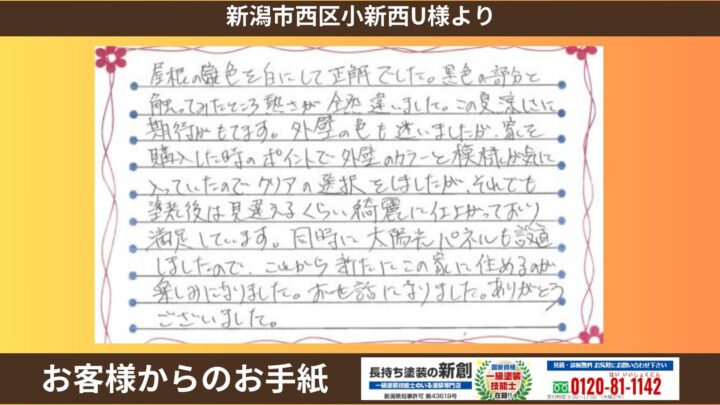 新潟市西区小新西U様より
屋根の色を白にして正解でした。黒色の部分と
触ってみたところ熱さが全然違いました。この夏涼しさに
期待がもてます。外壁の色も迷いましたが、家を
購入した時のポイントで外壁のカラーと模様が気に
入っていたのでクリアの選択をしましたが、それでも
塗装後は見違えるくらい綺麗に仕上がっており
満足しています。同時に太陽光パネルも設置
しましたので、これから新たにこの家に住めるのが
楽しみになりました。お世話になりました。ありがとう
ございました。
お客様からのお手紙
長持ち塗装の新創
一級塗装技能士のいる塗装専門店
新潟県知事許可 第43619号
国家資格
一級塗装
技能士
在籍!!
見積・診断無料 お気軽にお問い合わせ下さい
はい いいしょくにん
0120-81-1142